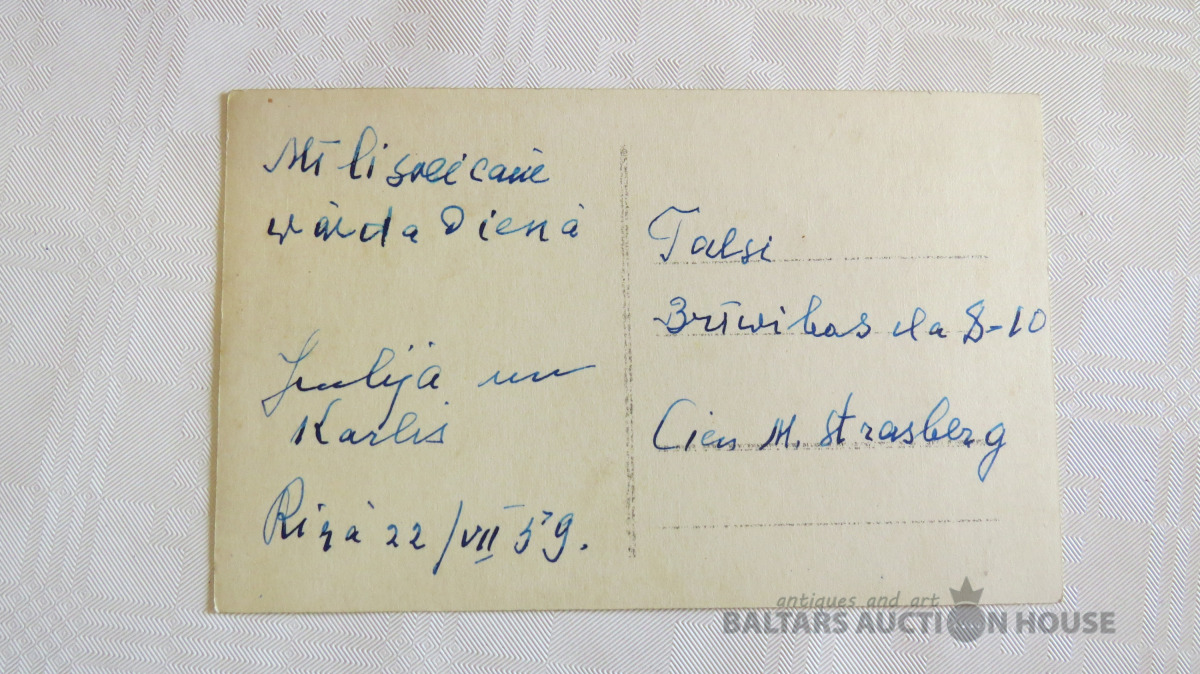 Mīļi sveicam
wārda Dienā
Jūlija un
Karlis
Rīgā 22/VII 59.
Talsi
Brīwibas ela 8-10
Cien M. Strasberg
antiques and art
BALTARS AUCTION HOUSE